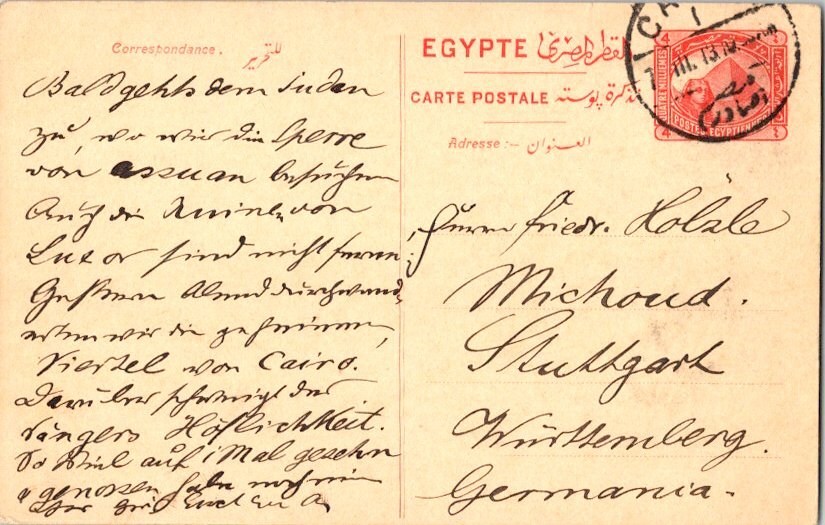 Correspondance.
Bald gehts dem Sudan
zu, wo wir die Sperre
von Assuan besuchen
Auch die Ruinen von
Luxor sind nicht ferne
Gestern Abend durchwand-
erten wir die geheimen
Viertel von Cairo.
Darüber schweigt des
Sängers Höflichkeit.
So viel auf 1 Mal gesehn
u genossen habe noch nie
EGYPTE القطر المصرى
CARTE POSTALE تذكرة پوسته
Adresse :— العنوان
Herrn Friedr. Hölzle
Michoud.
Stuttgart
Württemberg.
Germania.
CA
III. 13
QUATRE MILLIEMES
POSTES EGYPTIENNES
4
4